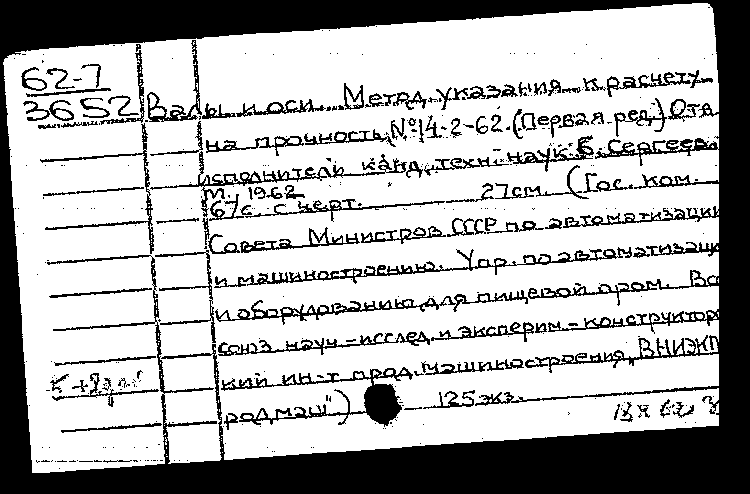 62-7
3652 Валы и оси. Метод. указания к расчету
на прочность, №14-2-62. (Первая ред.) Отв
исполнители канд. техн. наук Б. Сергеев.
М., 1962
61с. с черт. 27см. (Гос. ком.
Совета Министров СССР по автоматизации
и машиностроению. Упр. по автоматизаци
и оборудованию для пищевой пром. Вс
союз науч-исслед. и эксперим-конструктор
кий ин-т прод. машиностроения, ВНИЭКП
родмаш") 125экз.